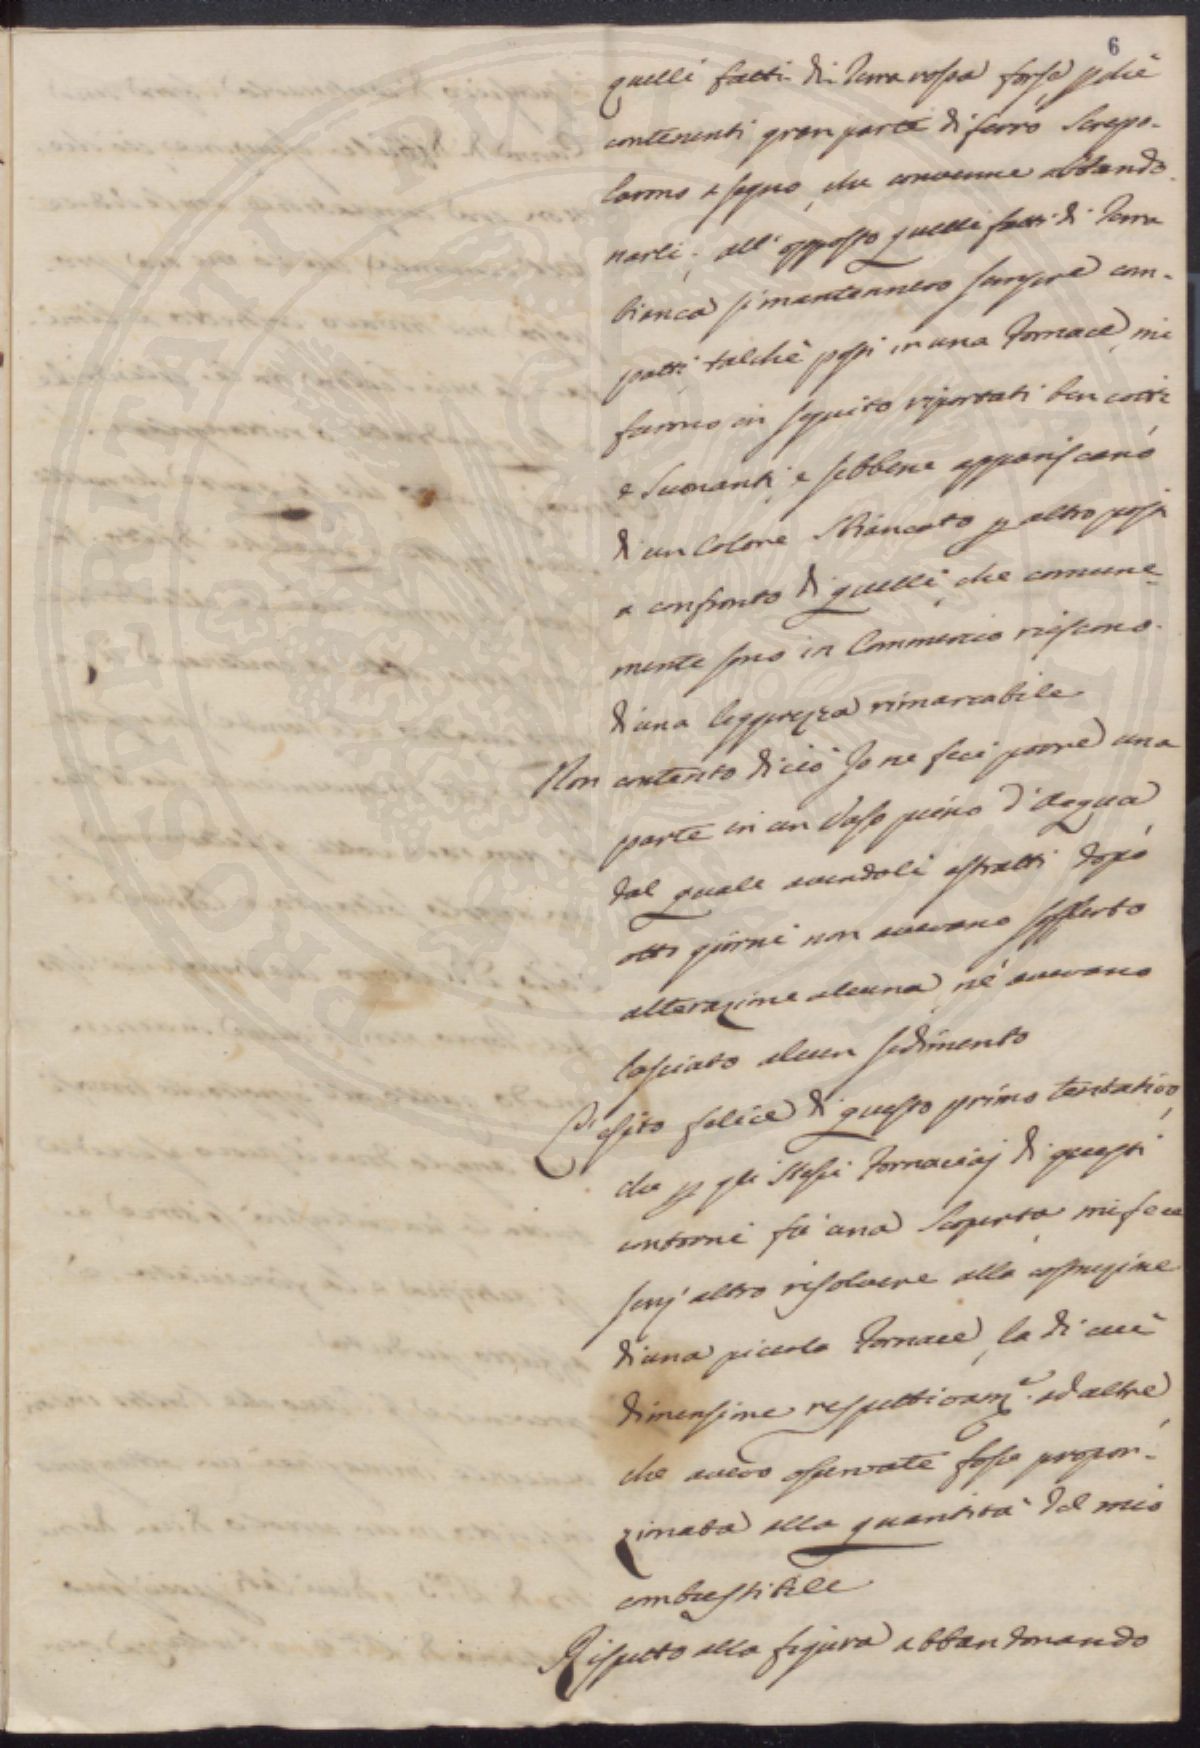 6
quelli fatti di Terra rossa forse p che
contenenti gran parte di ferro screpo-
larono a segno, che convenne abbando-
narli; all'opposto quelli fatti di Terra
bianca si mantennero sempre com-
patti talchè posti in una Fornace, mi
furono in seguito riportati ben cotti
e suonanti, e sebbene appariscano
di un Colore sbiancato p altro posti
a confronto di quelli, che comune-
mente sono in Commercio riescono
di una leggerezza rimarcabile
Non contento di ciò Io ne feci porre una
parte in un Vaso pieno d'Acqua
dal quale avendoli estratti dopo
otto giorni non avevano sofferto
alterazione alcuna, nè avevano
lasciato alcun sedimento
L'esito felice di questo primo tentativo,
che p gli stessi Fornaciaj di questi
contorni fù una scoperta, mi fece
senz'altro risolvere alla costruzione
di una piccola Fornace, la di cui
dimensione respettivam.e ad altre,
che avevo osservate fosse propor-
zionata alla quantità del mio
combustibile
Rispetto alla figura abbandonando
PROSPERITATI PUBLICAE